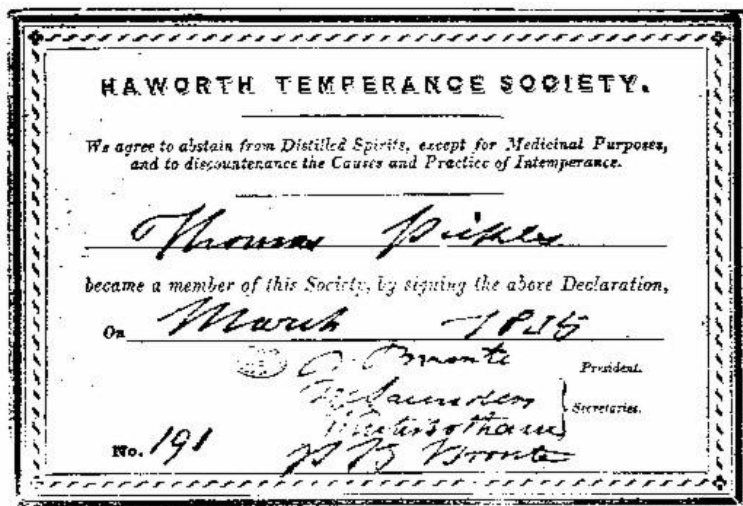 HAWORTH TEMPERANCE SOCIETY.
We agree to abstain from Distilled Spirits, except for Medicinal Purposes,
and to discountenance the Causes and Practice of Intemperance.
Thomas Pickles
became a member of this Society, by signing the above Declaration,
On March 1835
P. Bronte President.
Saunders
Winterbotham Secretaries.
No. 191 P B Bronte